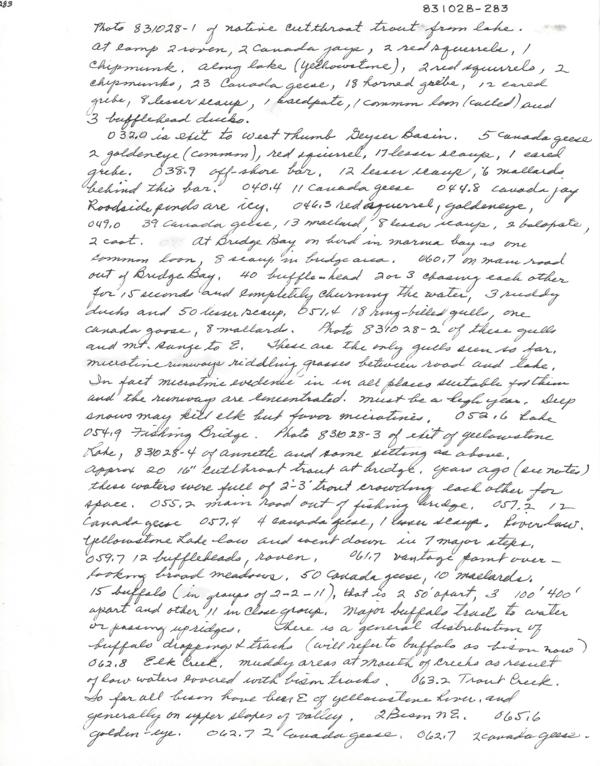 283
831028-283
Photo 831028-1 of native cutthroat trout from lake.
At camp 2 raven, 2 Canada jays, 2 red squirrels, 1
chipmunk. Along lake (Yellowstone), 2 red squirrels, 2
chipmunks, 23 Canada geese, 18 horned grebe, 12 eared
grebe, 8 lesser scaup, 1 baldpate, 1 common loon (called) and
3 bufflehead ducks.
032.0 is exit to West Thumb Geyser Basin. 5 Canada geese
2 goldeneye (common), red squirrel, 17 lesser scaup, 1 eared
grebe. 038.9 off-shore bar. 12 lesser scaup, 6 mallards
behind this bar. 040.4 11 Canada geese 044.8 Canada jay
Roadside ponds are icy. 046.3 red squirrel, goldeneye,
049.0 39 Canada geese, 13 mallard, 8 lesser scaup, 2 balpate,
2 coot. At Bridge Bay on bird in marina bay is one
common loon, 8 scaup in bridge area. 060.7 on main road
out of Bridge Bay. 40 buffle-head 2 or 3 chasing each other
for 15 seconds and completely churning the water, 3 ruddy
ducks and 50 lesser scaup. 051.4 18 ring-billed gulls, one
Canada goose, 8 mallards. Photo 831028-2 of these gulls
and mt. range to E. These are the only gulls seen so far.
microtine runways riddling grasses between road and lake.
In fact microtine evidence in in all places suitable for them
and the runways are concentrated. must be a high year. Deep
snows may kill elk but favor microtines. 052.6 Lake
054.9 Fishing Bridge. Photo 831028-3 of exit of Yellowstone
Lake, 831028-4 of Annette and same setting as above.
Approx 20 16" cutthroat trout at bridge. years ago (see notes)
these waters were full of 2'-3' trout crowding each other for
space. 055.2 main road out of fishing bridge. 057.2 12
Canada geese 057.4 4 Canada geese, 1 lesser scaup. River low.
Yellowstone Lake low and went down in 7 major steps.
059.7 12 buffleheads, raven. 061.7 vantage point over-
looking broad meadows. 50 Canada geese, 10 mallards.
15 buffalo (in groups of 2-2-11), that is 2 50' apart, 3 100' 400'
apart and other 11 in close group. Major buffalo trails to water
or passing up ridges. There is a general distribution of
buffalo droppings & tracks (will refer to buffalo as bison now)
062.8 Elk Creek. muddy areas at mouth of creeks as result
of low waters covered with bison tracks. 063.2 Trout Creek.
So far all bison have been E of Yellowstone River and
generally on upper slopes of valley. 2 Bison NE. 065.6
golden-eye. 062.7 2 Canada geese. 062.7 2 Canada geese.